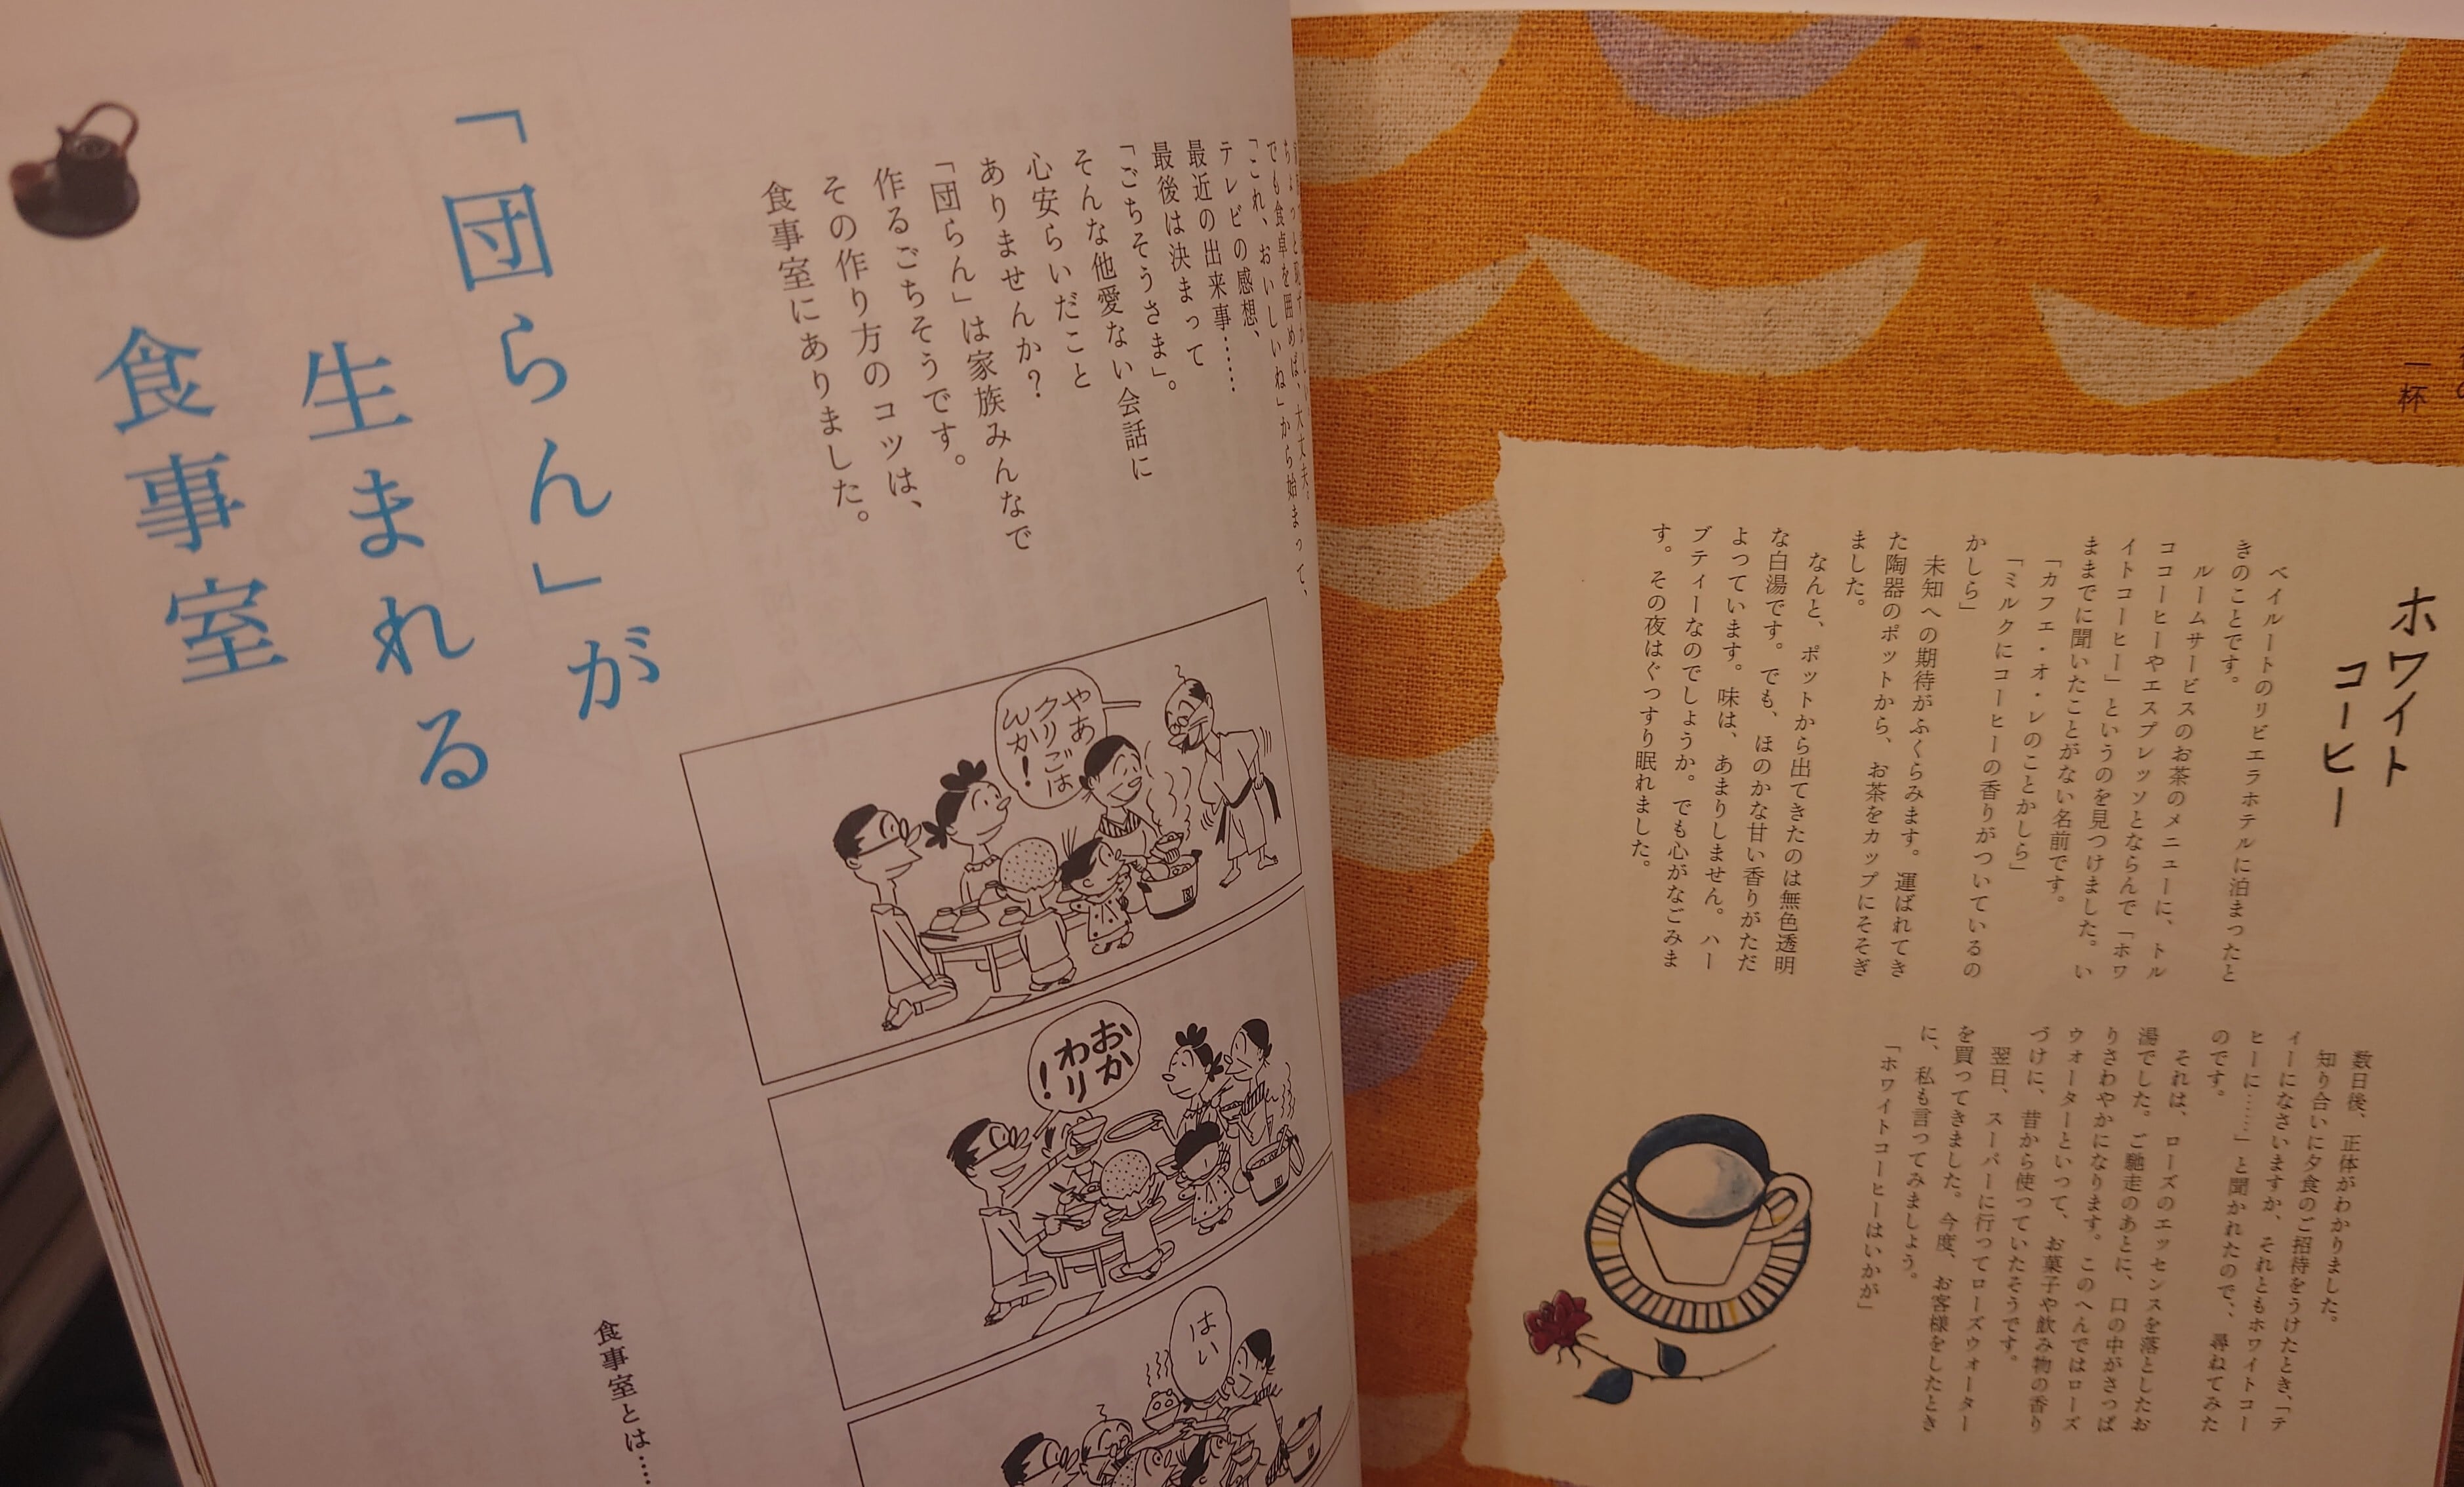 一杯
ホワイト
コーヒー
ベイルートのリビエラホテルに泊まったと
きのことです。
ルームサービスのお茶のメニューに、トル
ココーヒーやエスプレッソとならんで「ホワ
イトコーヒー」というのを見つけました。い
ままでに聞いたことがない名前です。
「カフェ・オ・レのことかしら」
「ミルクにコーヒーの香りがついているの
かしら」
未知への期待がふくらみます。運ばれてき
た陶器のポットから、お茶をカップにそそぎ
ました。
なんと、ポットから出てきたのは無色透明
な白湯です。でも、ほのかな甘い香りがただ
よっています。味は、あまりしません。ハー
ブティーなのでしょうか。でも心がなごみま
す。その夜はぐっすり眠れました。
数日後、正体がわかりました。
知り合いに夕食のご招待をうけたとき、「テ
ィーになさいますか、それともホワイトコー
ヒーに……」と聞かれたので、、尋ねてみた
のです。
それは、ローズのエッセンスを落としたお
湯でした。ご馳走のあとに、口の中がさっぱ
りさわやかになります。このへんではローズ
ウォーターといって、お菓子や飲み物の香り
づけに、昔から使っていたそうです。
翌日、スーパーに行ってローズウォーター
を買ってきました。今度、お客様をしたとき
に、私も言ってみましょう。
「ホワイトコーヒーはいかが」
でも食卓を囲めば、大丈夫。
「これ、おいしいね」から始まって、
テレビの感想、
最近の出来事……
最後は決まって
「ごちそうさま」。
そんな他愛ない会話に
心安らいだこと
ありませんか?
「団らん」は家族みんなで
作るごちそうです。
その作り方のコツは、
食事室にありました。
「団らん」が
生まれる
食事室
やあ
クリごは
んか!
おか
わり!
はい
食事室とは……